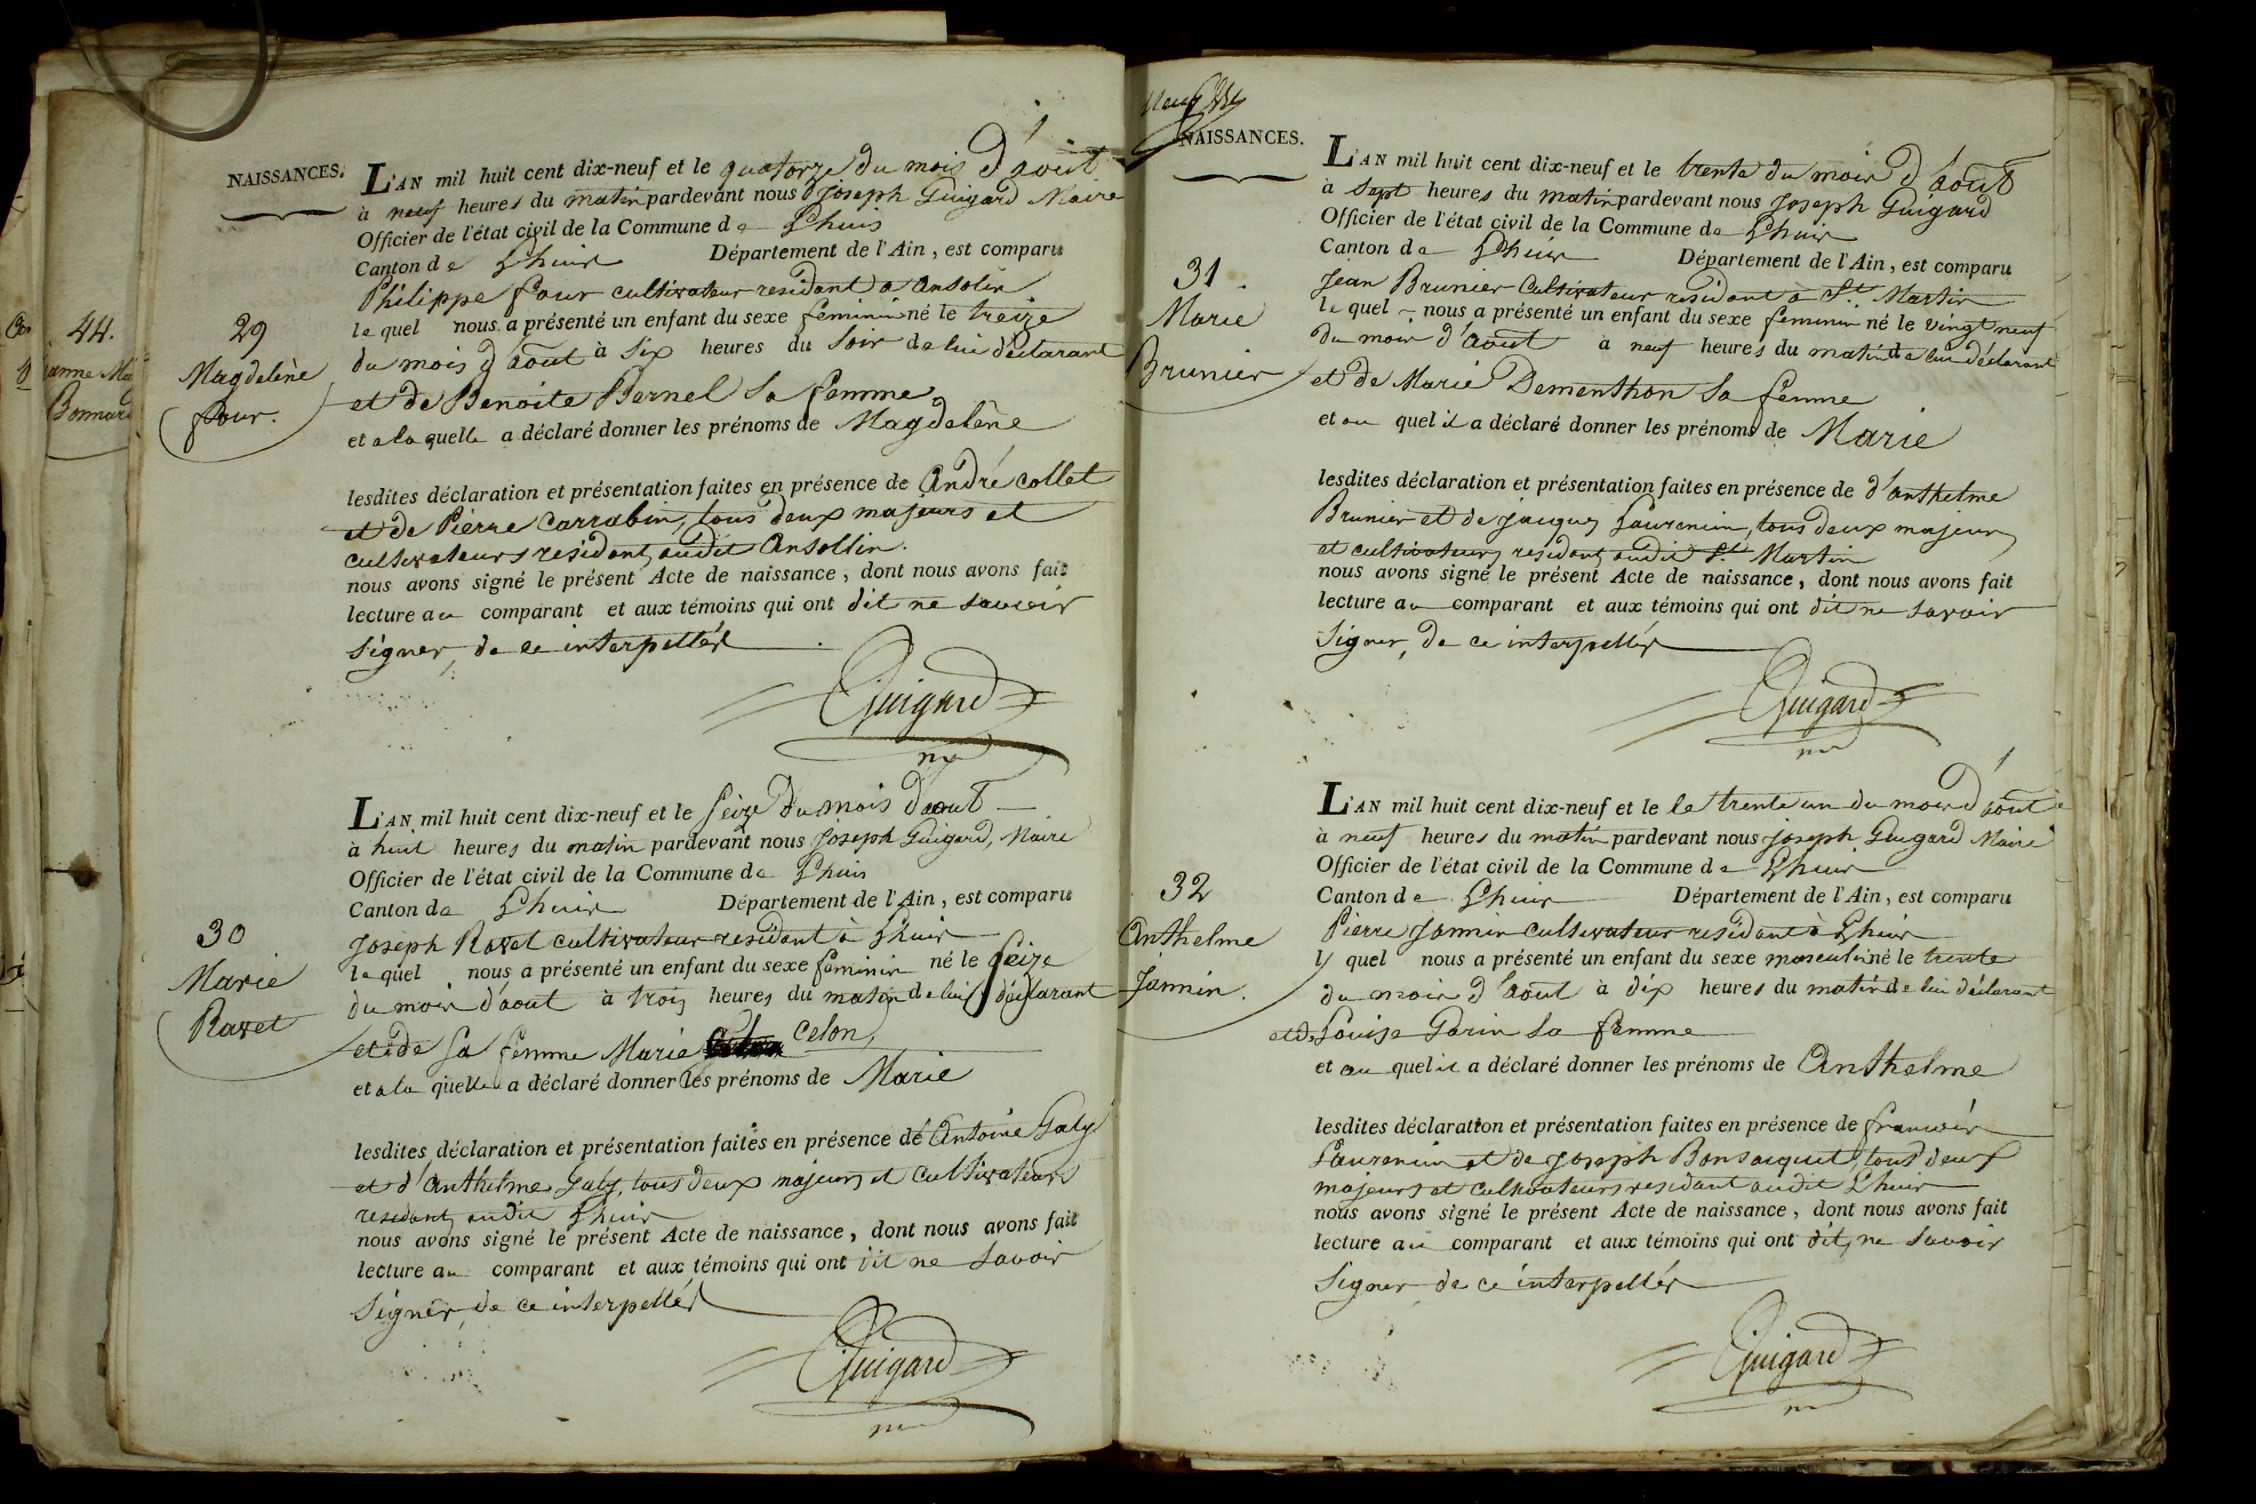 44.
anne Ma
Bonnard
NAISSANCES.
29
Magdelène
four.
L'AN mil huit cent dix-neuf et le quatorze du mois d'août
à neuf heures du matin pardevant nous Joseph Guigard Maire
Officier de l'état civil de la Commune de Lhuis
Canton de Lhuis Département de l'Ain, est comparu
Philippe four cultivateur residant a Ansolin
le quel nous a présenté un enfant du sexe féminin né le treize
du mois d'août à six heures du soir de lui déclarant
et de Benoite Bernel sa femme
et a la quelle a déclaré donner les prénoms de Magdelène
lesdites déclaration et présentation faites en présence de André collet
et de Pierre Carrabin, tous deux majeurs et
cultivateurs residants audit Ansollin.
nous avons signé le présent Acte de naissance, dont nous avons fait
lecture au comparant et aux témoins qui ont dit ne savoir
signer, de ce interpellés
Guigard
30
Marie
Ravet
L'AN mil huit cent dix-neuf et le seize du mois d'août
à huit heures du matin pardevant nous Joseph Guigard, Maire
Officier de l'état civil de la Commune de Lhuis
Canton de Lhuis Département de l'Ain, est comparu
Joseph Ravet cultivateur residant à Lhuis
le quel nous a présenté un enfant du sexe féminin né le seize
du mois d'août à trois heures du matin de lui déclarant
et de sa femme Marie Celon,
et a la quelle a déclaré donner les prénoms de Marie
lesdites déclaration et présentation faites en présence de Antoine Galy
et d'Anthelme Galy, tous deux majeurs et cultivateurs
residants audit Lhuis
nous avons signé le présent Acte de naissance, dont nous avons fait
lecture au comparant et aux témoins qui ont dit ne savoir
signer, de ce interpellés
Guigard
NAISSANCES.
31.
Marie
Brunier
L'AN mil huit cent dix-neuf et le trente du mois d'août
à sept heures du matin pardevant nous Joseph Guigard
Officier de l'état civil de la Commune de Lhuis
Canton de Lhuis Département de l'Ain, est comparu
Jean Brunier Cultivateur residant à St. Martin
le quel nous a présenté un enfant du sexe feminin né le vingt neuf
du mois d'août à neuf heures du matin de lui déclarant
et de Marie Dementhon sa femme
et au quel il a déclaré donner les prénoms de Marie
lesdites déclaration et présentation faites en présence de d'anthelme
Brunier et de jacques Laurencin, tous deux majeurs
et cultivateurs residants audit St. Martin
nous avons signé le présent Acte de naissance, dont nous avons fait
lecture au comparant et aux témoins qui ont dit ne savoir
signer, de ce interpellés
Guigard
32
Anthelme
Jannin.
L'AN mil huit cent dix-neuf et le le trente un du mois d'août
à neuf heures du matin pardevant nous Joseph Guigard Maire
Officier de l'état civil de la Commune de Lhuis
Canton de Lhuis Département de l'Ain, est comparu
Pierre Jannin cultivateur residant à Lhuis
le quel nous a présenté un enfant du sexe masculin né le trente
du mois d'août à dix heures du matin de lui déclarant
et de Louise Garin sa femme
et au quel il a déclaré donner les prénoms de Anthelme
lesdites déclaration et présentation faites en présence de francois
Laurencin et de Joseph Bonsacquet, tous deux
majeurs et cultivateurs residant audit Lhuis
nous avons signé le présent Acte de naissance, dont nous avons fait
lecture au comparant et aux témoins qui ont dit, ne savoir
signer de ce interpellés
Guigard